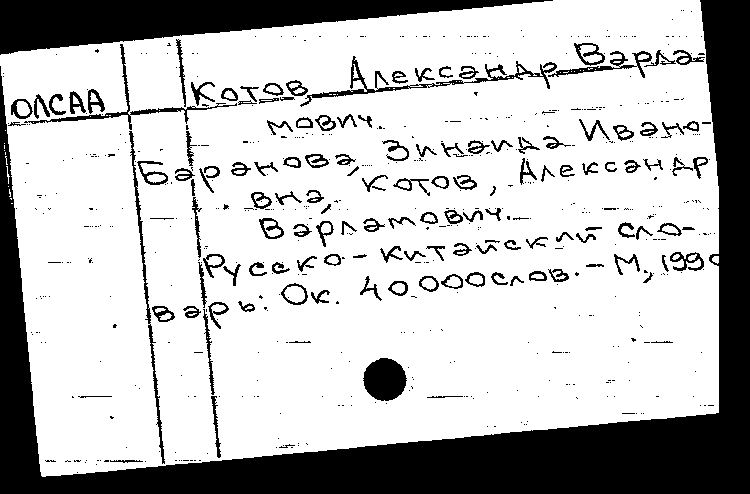 ОЛСАА Котов, Александр Варла-
мович.
Баранова, Зинаида Ивано-
вна, Котов, Александр
Варламович.
Русско-китайский сло-
варь: Ок. 40000слов. - М, 1990